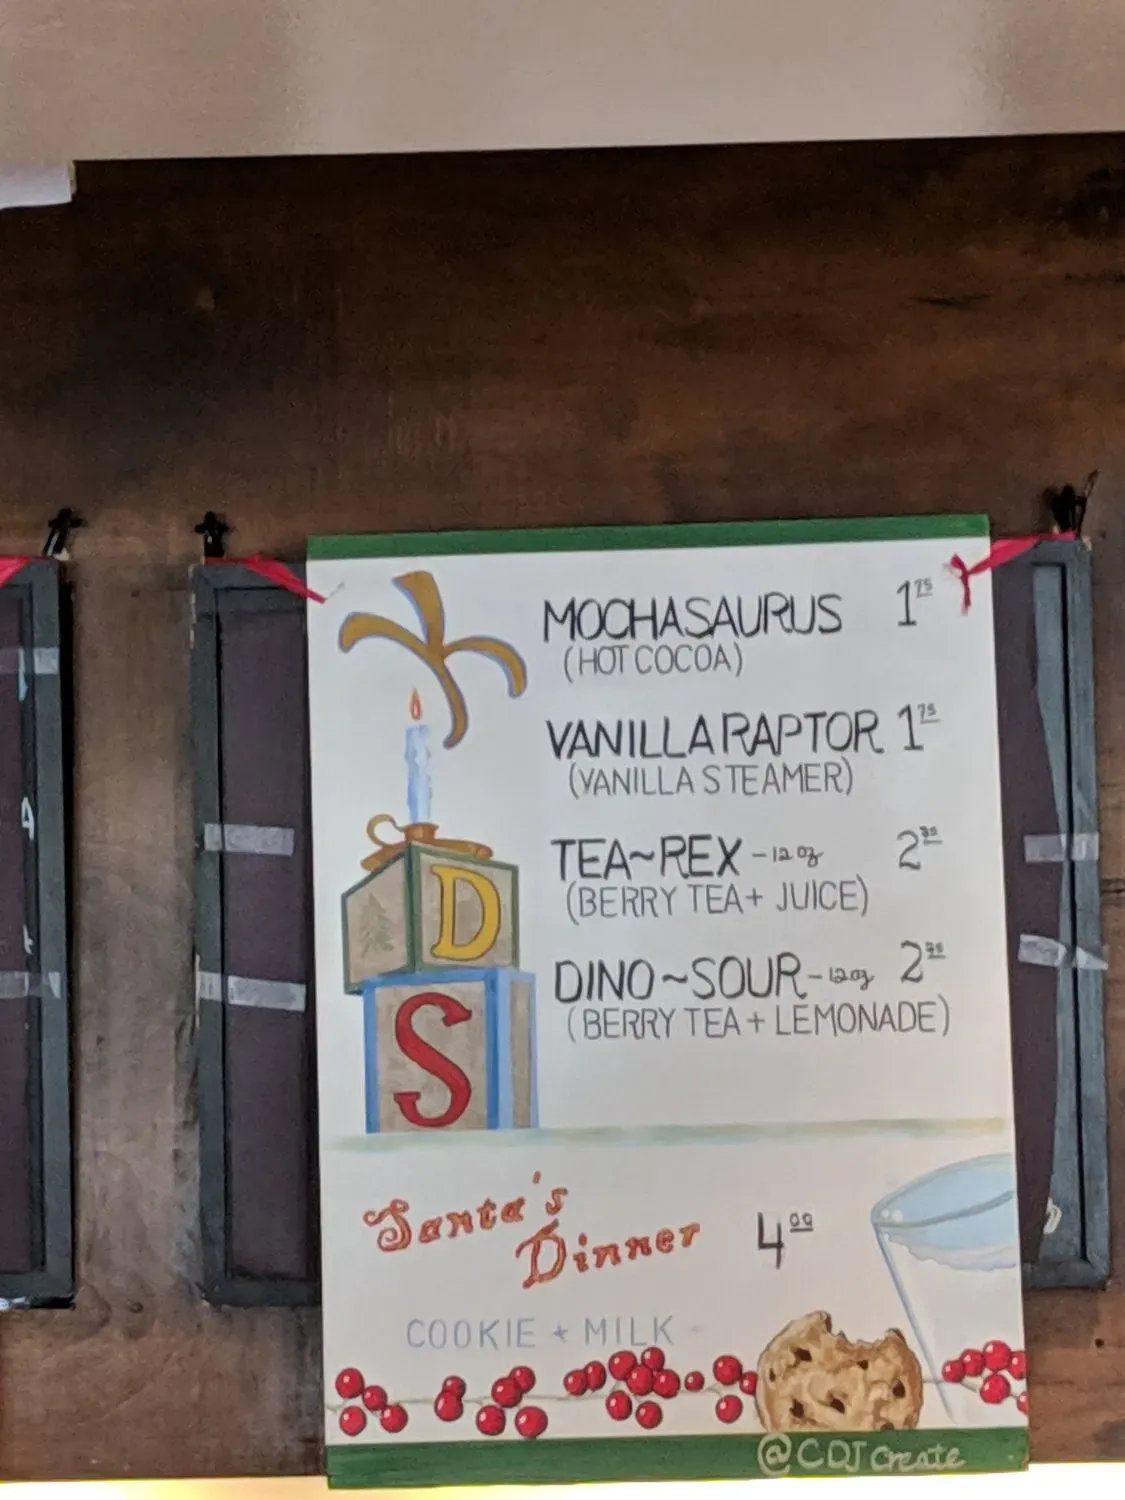 K
D
S
MOCHASAURUS 1 75
(HOT COCOA)
VANILLA RAPTOR 1 75
(VANILLA STEAMER)
TEA~REX -12 oz 2
(BERRY TEA + JUICE)
DINO~SOUR -12 oz 2
(BERRY TEA + LEMONADE)
Santa's
Dinner 4 00
COOKIE + MILK
@CDJ Create